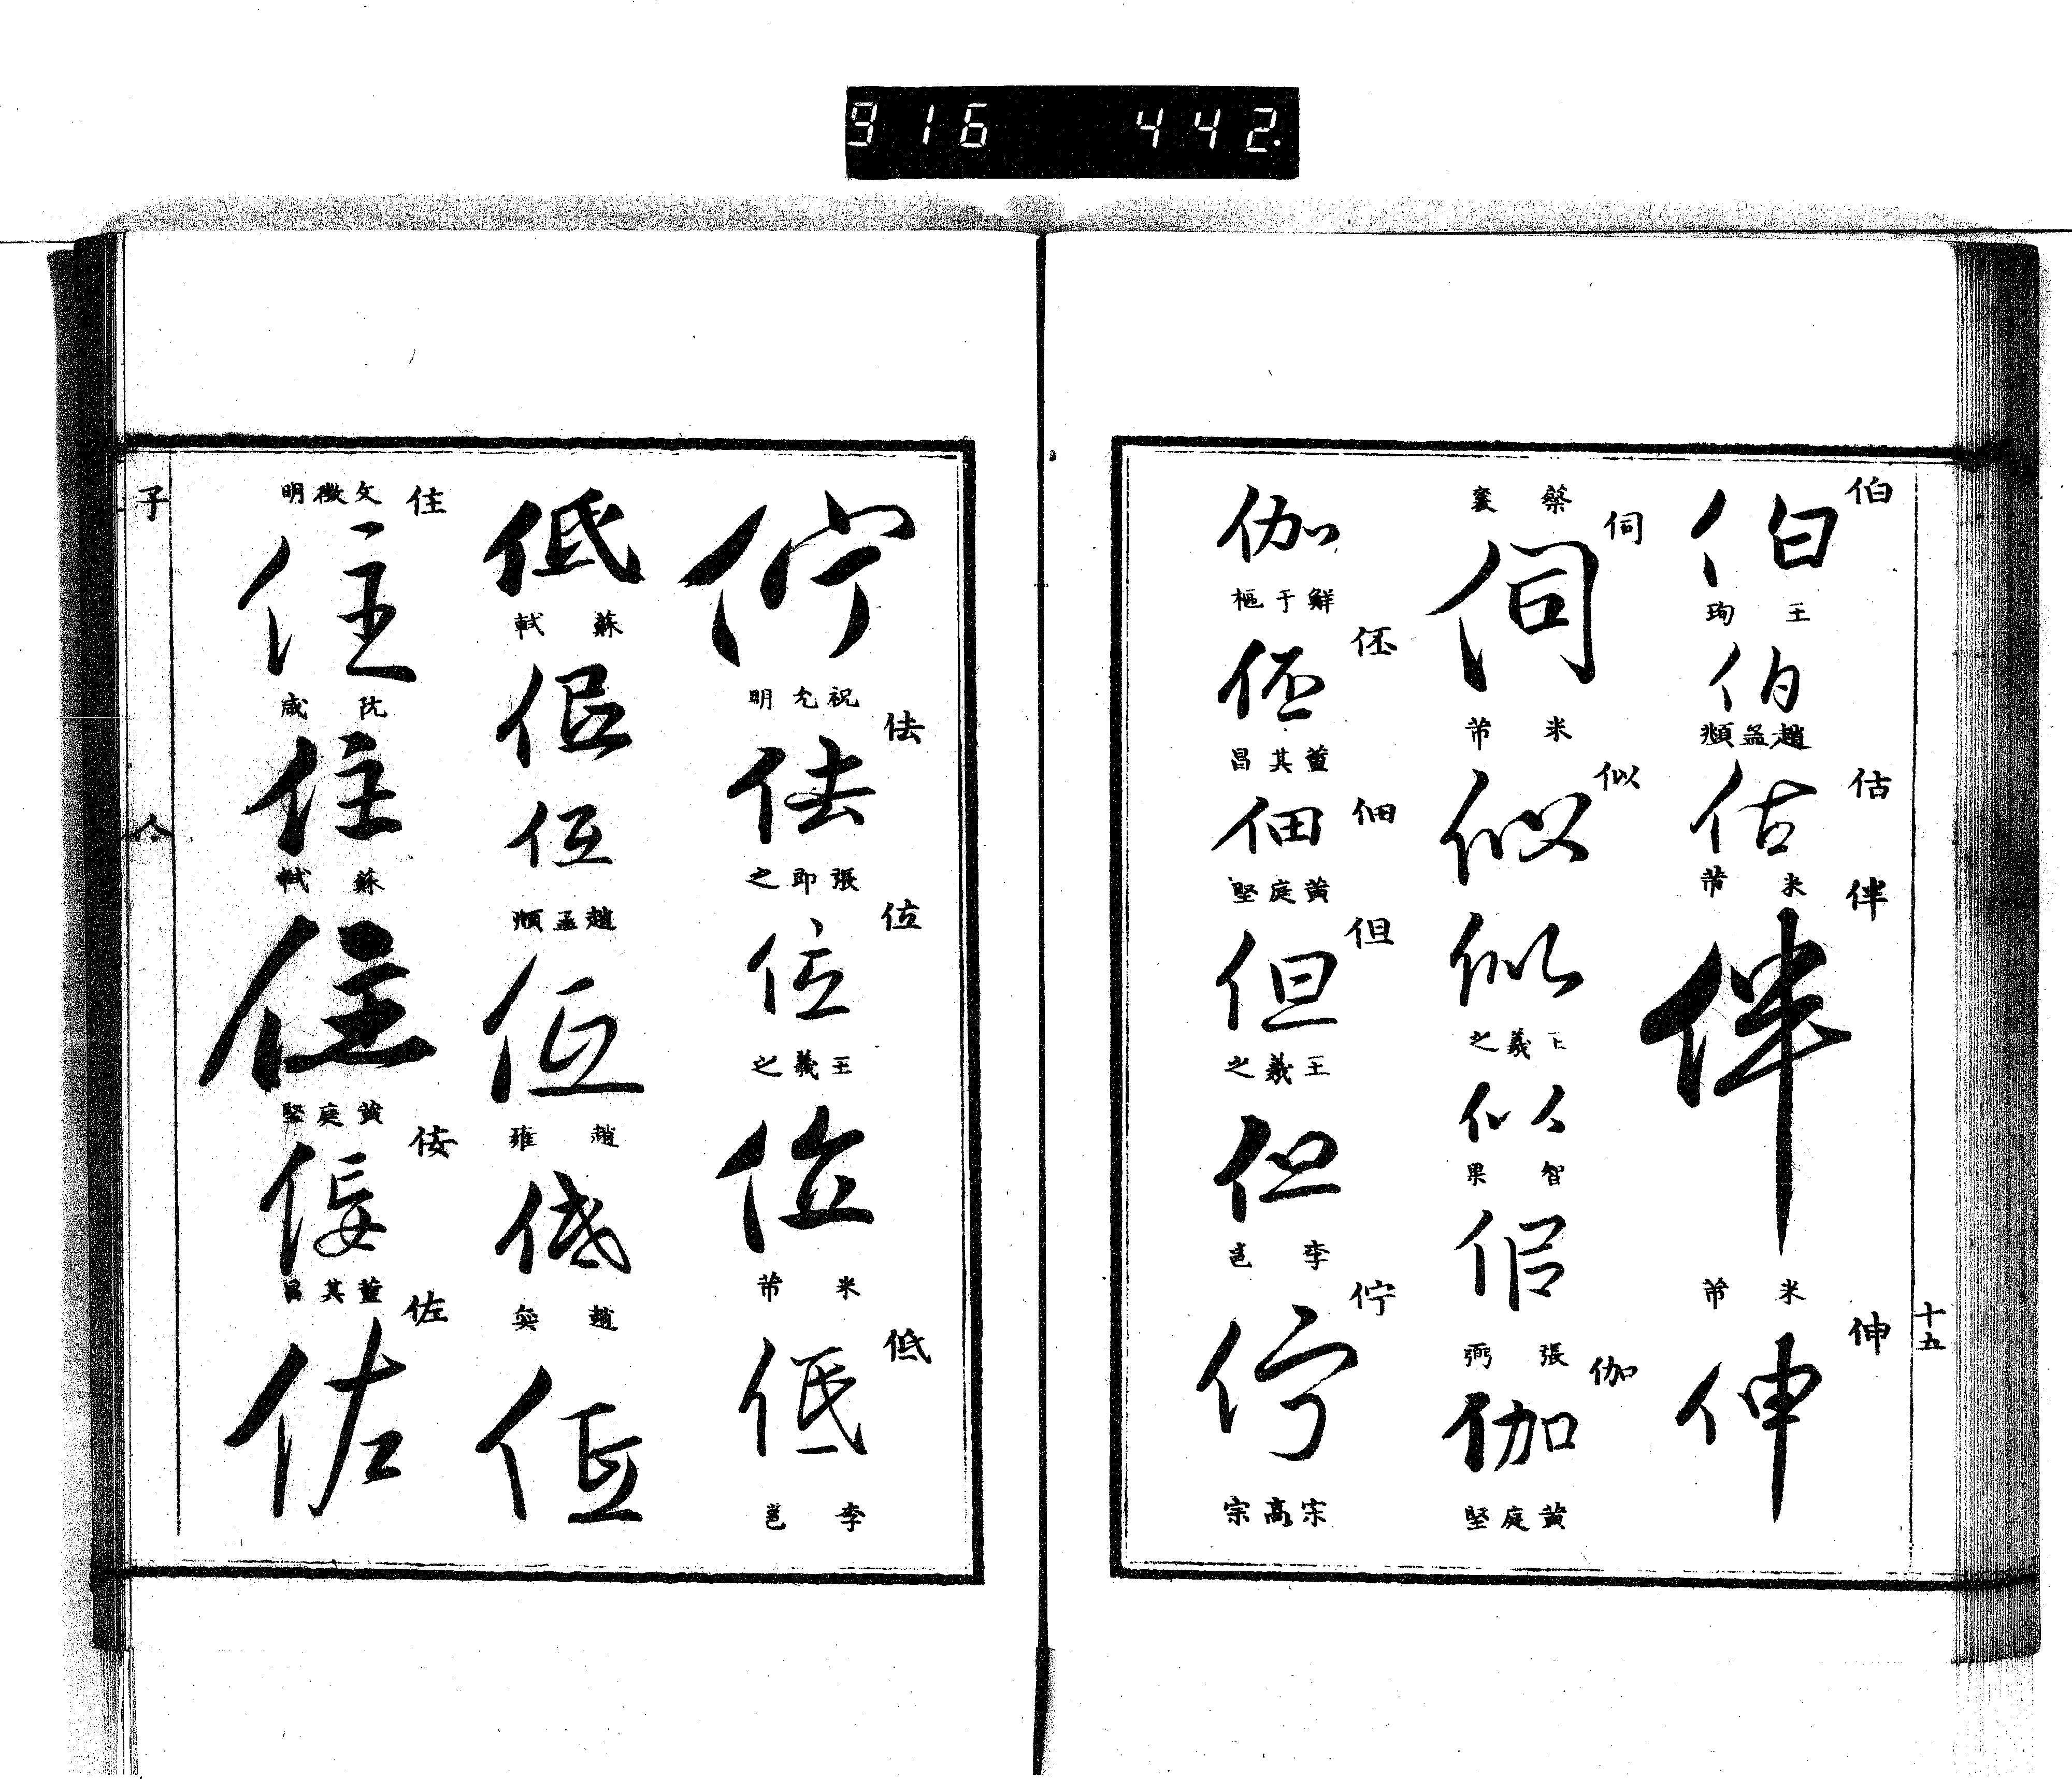 916 442.
十五
伯
伯
王珣
伯
趙孟頫
估
估
米芾
伴
伴
米芾
伸
伸
蔡襄
伺
伺
米芾
似
似
似
王羲之
似
智果
佀
張弼
伽
伽
黄庭堅
伽
鮮于樞
伾
伾
董其昌
佃
佃
黄庭堅
但
但
王羲之
但
李邕
佇
佇
宋高宗
佇
祝允明
佉
佉
張即之
位
位
王羲之
位
米芾
低
低
李邕
低
蘇軾
低
低
趙孟頫
低
趙雍
低
趙奕
低
文徵明
住
住
阮咸
住
蘇軾
住
黄庭堅
佞
佞
董其昌
佐
佐
子
人